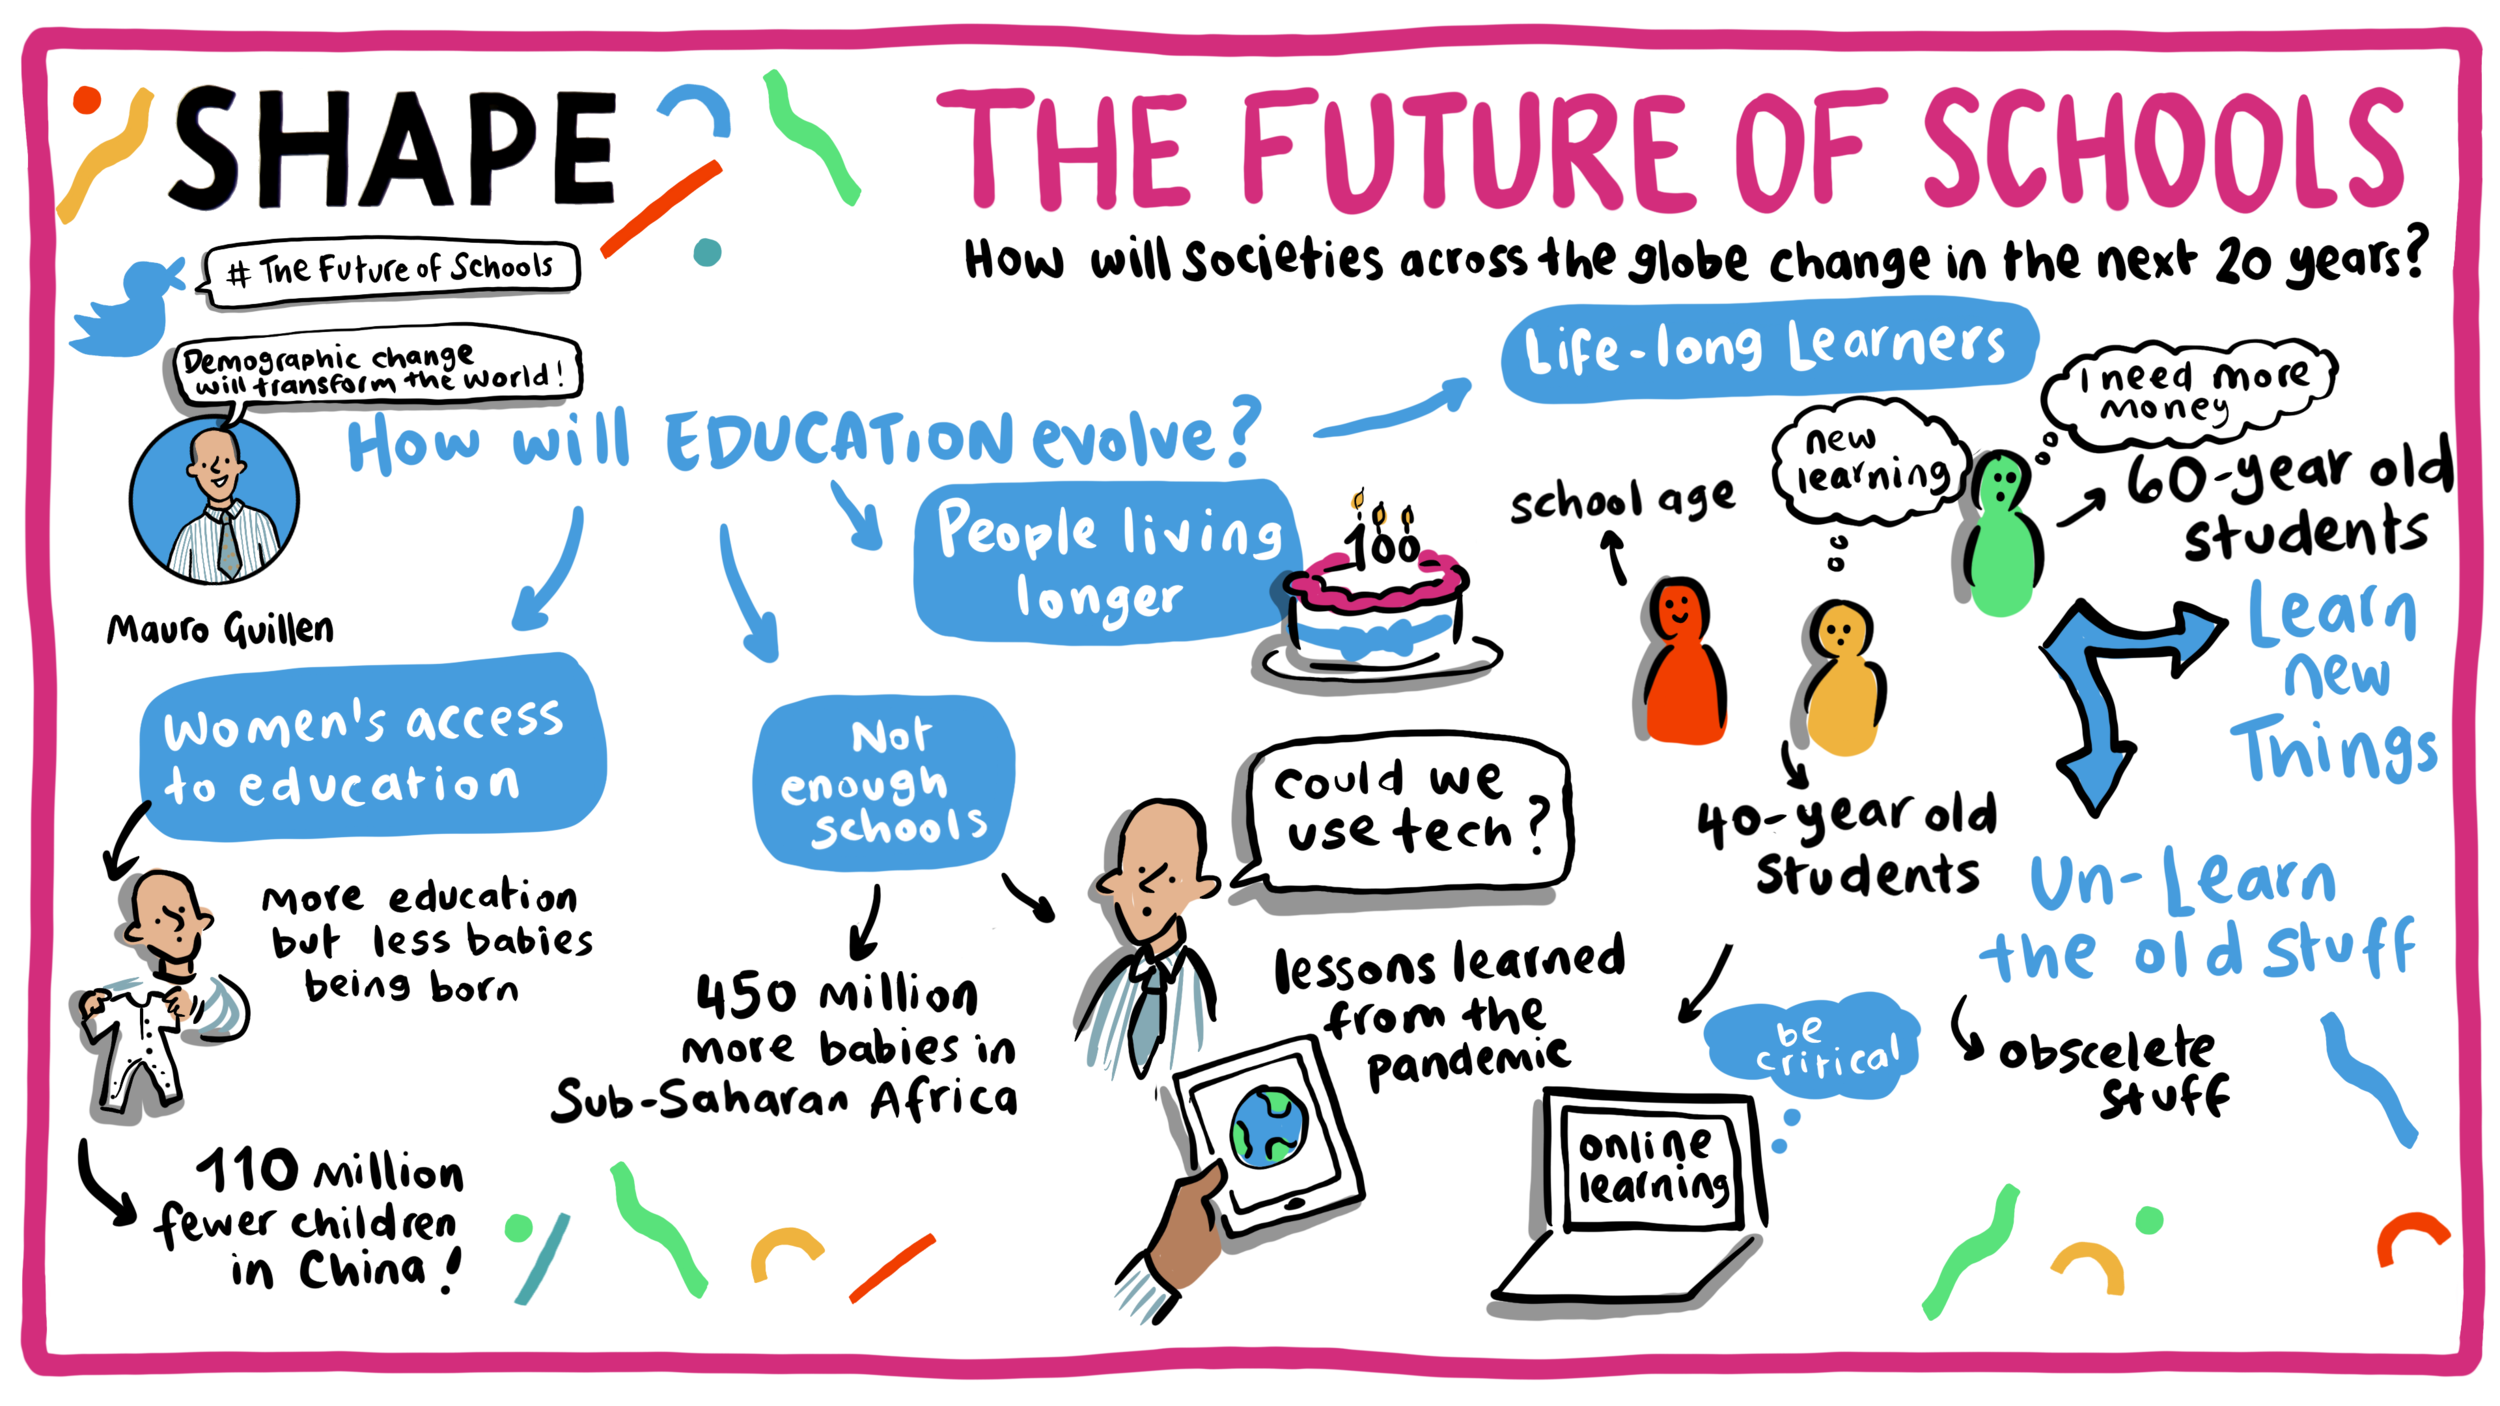 SHAPE
THE FUTURE OF SCHOOLS
How will Societies across the globe change in the next 20 years?
# The Future of Schools
Demographic change
will transform the world!
Mauro Guillen
How will EDUCATION evolve?
Women's access
to education
more education
but less babies
being born
110 million
fewer children
in China!
Not
enough
schools
450 million
more babies in
Sub-Saharan Africa
could we
use tech?
lessons learned
from the
pandemic
online
learning
be
critical
People living
longer
100
Life-long Learners
school age
new
learning
40-year old
students
I need more
money
60-year old
students
Learn
new
Things
Un-Learn
the old stuff
obscelete
stuff